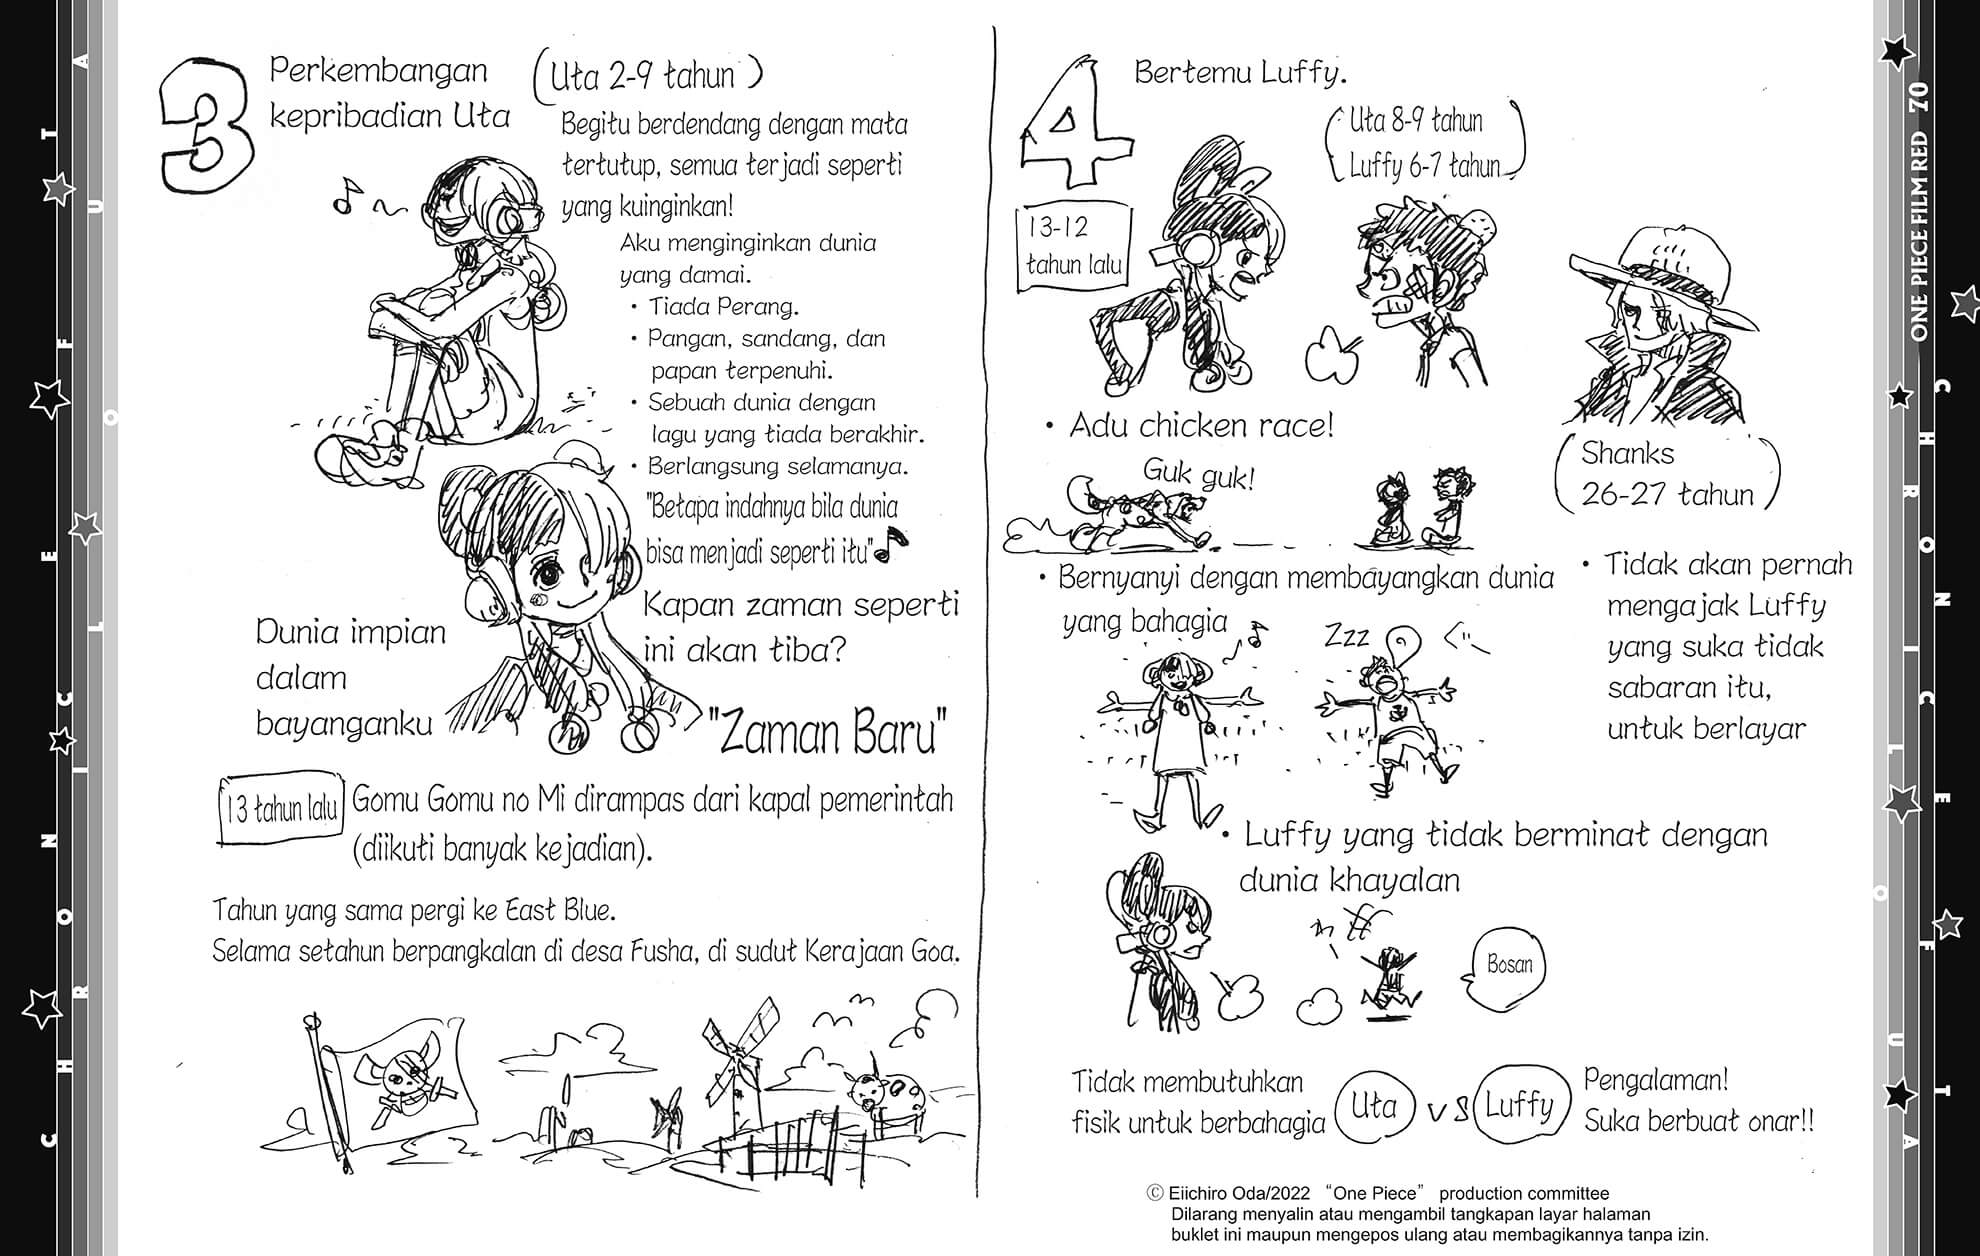 3
Perkembangan
kepribadian Uta
(Uta 2-9 tahun)
Begitu berdendang dengan mata
tertutup, semua terjadi seperti
yang kuinginkan!
Aku menginginkan dunia
yang damai.
• Tiada Perang.
• Pangan, sandang, dan
papan terpenuhi.
• Sebuah dunia dengan
lagu yang tiada berakhir.
• Berlangsung selamanya.
"Betapa indahnya bila dunia
bisa menjadi seperti itu"
Kapan zaman seperti
ini akan tiba?
Dunia impian
dalam
bayanganku
"Zaman Baru"
13 tahun lalu
Gomu Gomu no Mi dirampas dari kapal pemerintah
(diikuti banyak kejadian).
Tahun yang sama pergi ke East Blue.
Selama setahun berpangkalan di desa Fusha, di sudut Kerajaan Goa.
4
Bertemu Luffy.
Uta 8-9 tahun
Luffy 6-7 tahun
13-12
tahun lalu
• Adu chicken race!
Guk guk!
Shanks
26-27 tahun
• Bernyanyi dengan membayangkan dunia
yang bahagia
Zzz
• Tidak akan pernah
mengajak Luffy
yang suka tidak
sabaran itu,
untuk berlayar
• Luffy yang tidak berminat dengan
dunia khayalan
Bosan
Tidak membutuhkan
fisik untuk berbahagia
Uta
VS
Luffy
Pengalaman!
Suka berbuat onar!!
© Eiichiro Oda/2022 “One Piece” production committee
Dilarang menyalin atau mengambil tangkapan layar halaman
buklet ini maupun mengepos ulang atau membagikannya tanpa izin.
ONE PIECE FILM RED 70